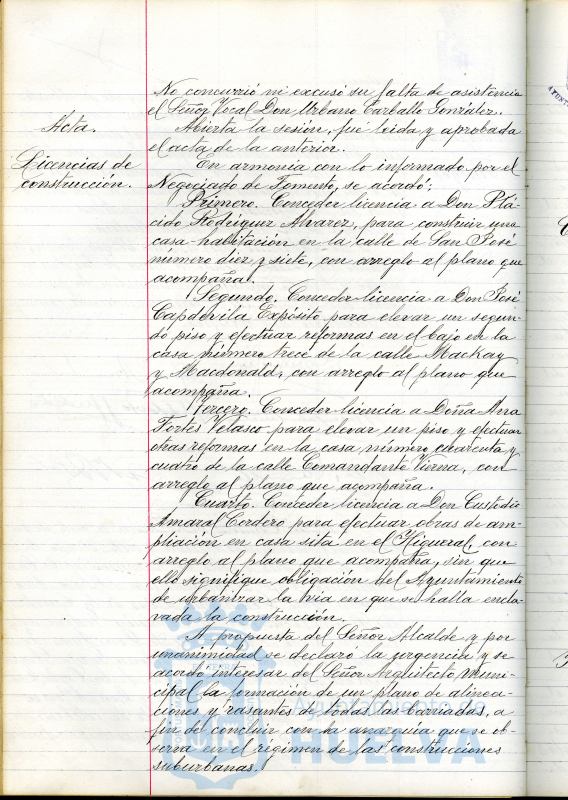 No concurrió ni excusó su falta de asistencia
el Señor Vocal Don Urbano Carballo González.
Acta.
Abierta la sesión, fué leida y aprobada
el acta de la anterior.
Licencias de
construcción.
En armonia con lo informado por el
Negociado de Fomento, se acordó:
Primero. Conceder licencia a Don Plá-
cido Rodriguez Alvarez, para construir una
casa-habitación en la calle de San José
número diez y siete, con arreglo al plano que
acompaña.
Segundo. Conceder licencia a Don José
Capdevila Expósito para elevar un segun-
do piso y efectuar reformas en el bajo en la
casa número trece de la calle Mackay
y Macdonald, con arreglo al plano que
acompaña.
Tercero. Conceder licencia a Doña Ana
Fortes Velasco para elevar un piso y efectuar
otras reformas en la casa número cuarenta y
cuatro de la calle Comandante Vierna, con
arreglo al plano que acompaña.
Cuarto. Conceder licencia a Don Custodio
Amaral Cordero para efectuar obras de am-
pliación en casa sita en el Higueral, con
arreglo al plano que acompaña, sin que
ello signifique obligación del Ayuntamiento
de urbanizar la via en que se halla encla-
vada la construcción.
A propuesta del Señor Alcalde y por
unanimidad se declaró la urgencia y se
acordó interesar del Señor Arquitecto Muni-
cipal la formación de un plano de alinea-
ciones y rasantes de todas las barriadas, a
fin de concluir con la anarquia que se ob-
serva en el régimen de las construcciones
suburbanas.
Ayuntamiento de
HUELVA